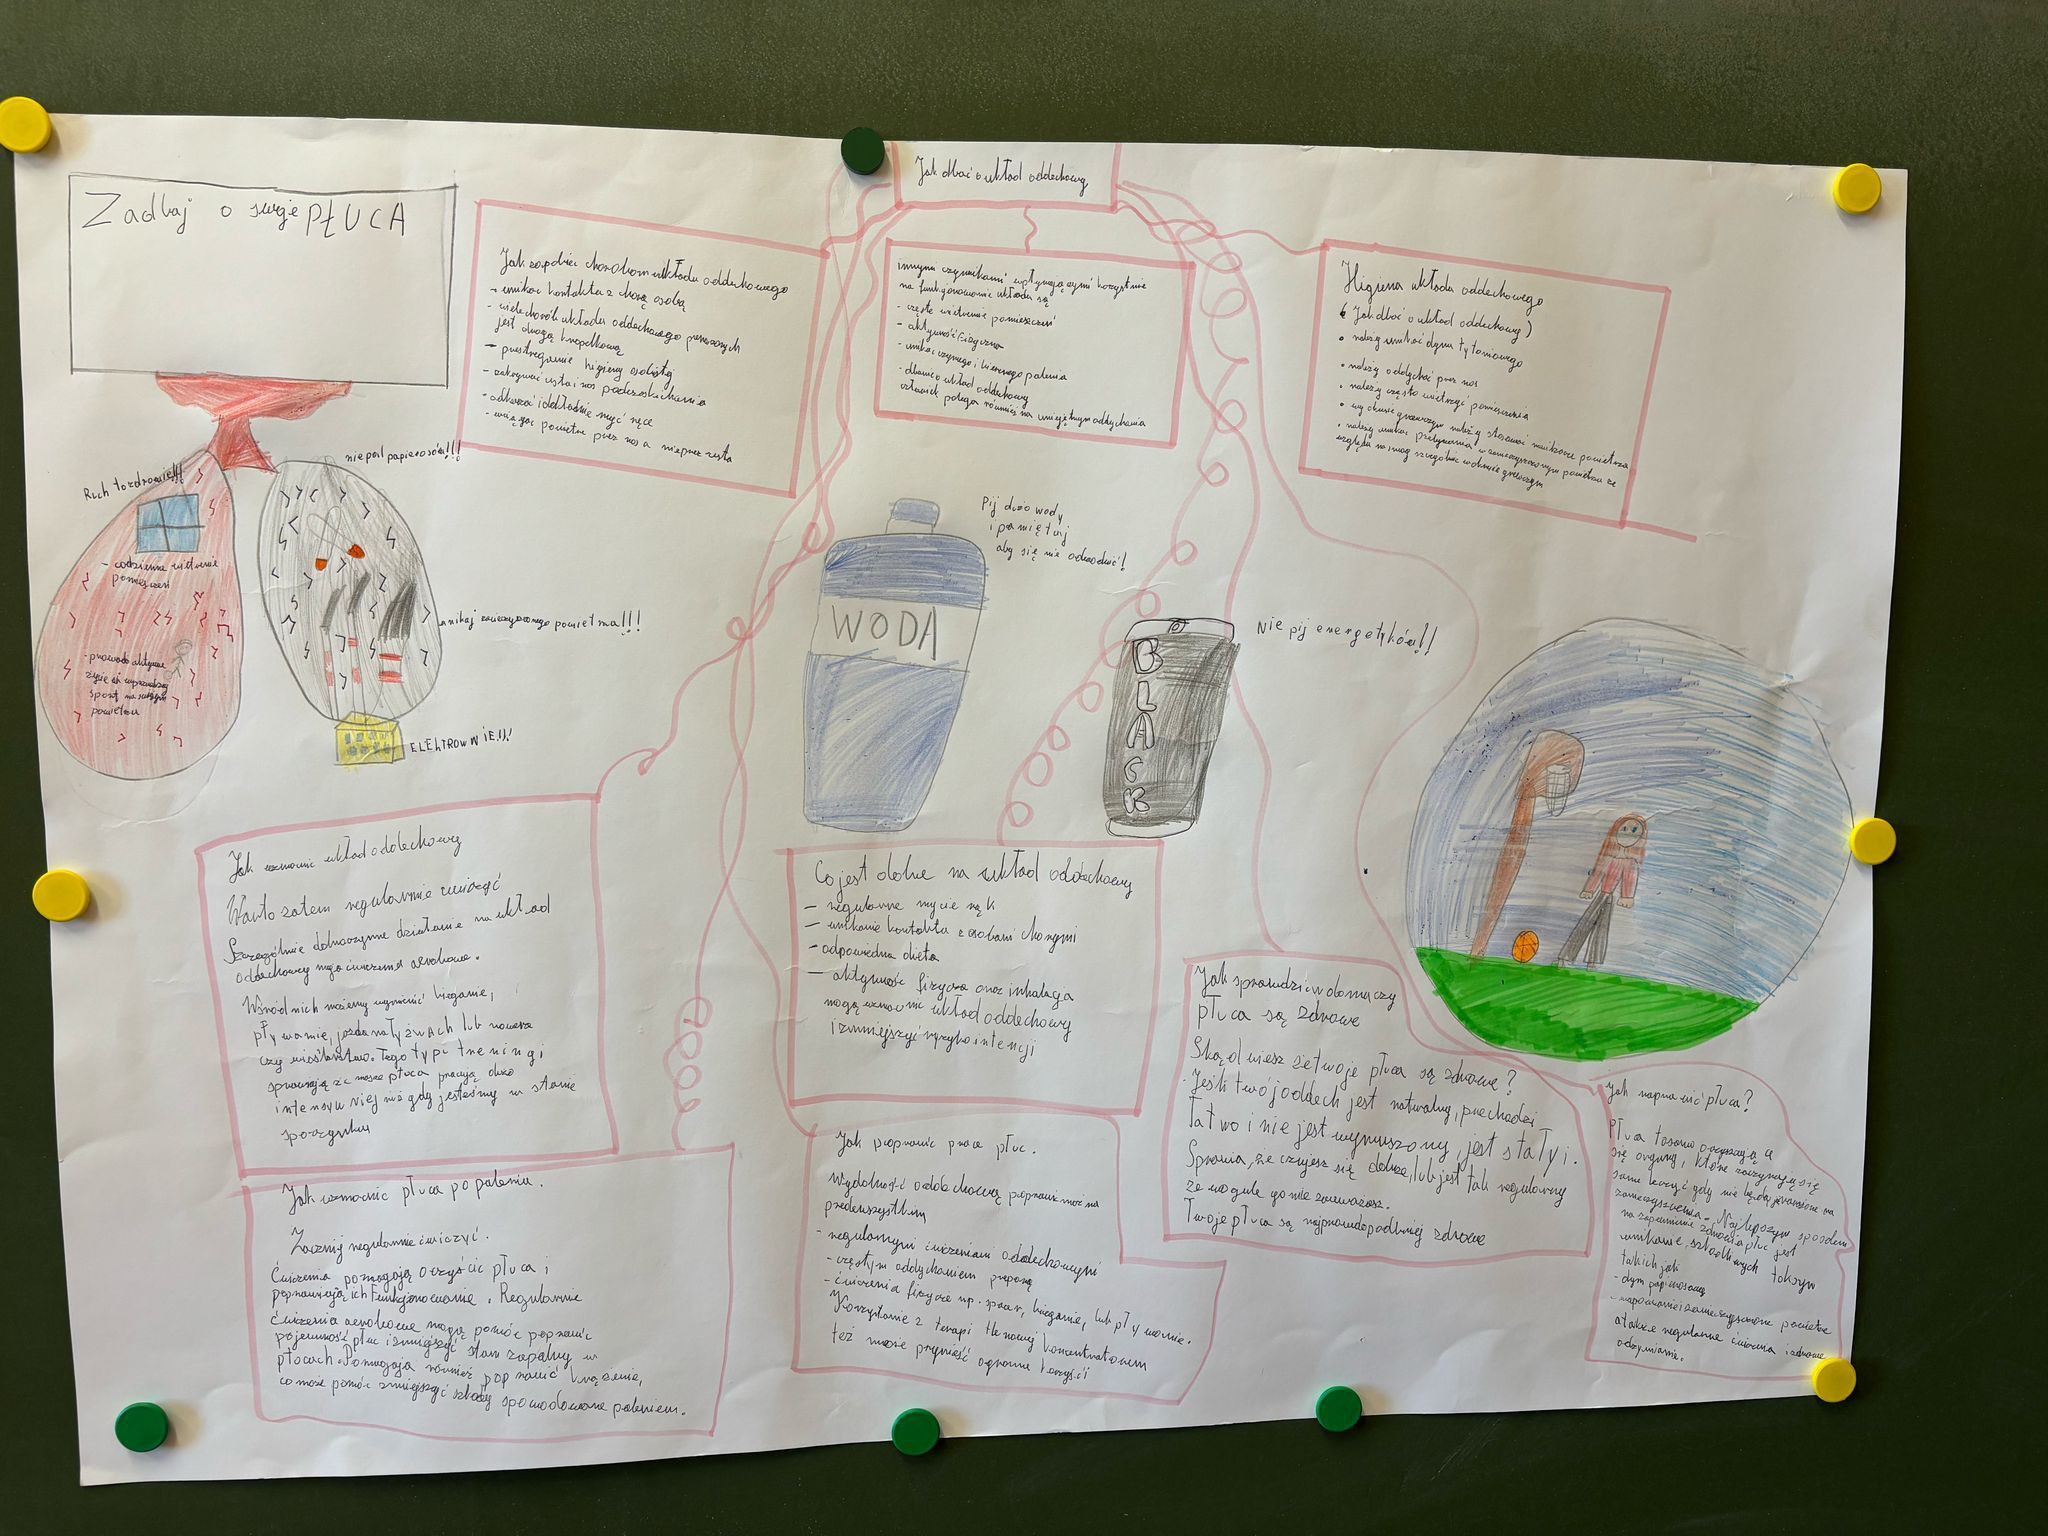 Jak dbać o układ oddechowy
Zadbaj o swoje PŁUCA
Ruch to zdrowie!!!
nie pal papierosów!!!
- codzienne wietrzenie
pomieszczeń
unikaj zanieczyszonego powietrza!!!
ELEKTROWNIE!!!
Jak zapobiec chorobom układu oddechowego
- unikać kontaktu z chorą osobą
- wiele chorób układu oddechowego przenoszonych
jest drogą kropelkową
- przestrzeganie higieny osobistej
- zakrywać usta i nos podczas kichania
- odkażać i dokładnie myć ręce
- wciągać powietrze przez nos a nie przez usta
innymi czynnikami wpływającymi korzystnie
na funkcjonowanie układu są
- częste wietrzenie pomieszczeń
- aktywność fizyczna
- unikać czynnego i biernego palenia
- dbanie o układ oddechowy
polega również na umiejętnym oddychaniu
Higiena układu oddechowego
( Jak dbać o układ oddechowy )
• należy unikać dymu tytoniowego
• należy oddychać przez nos
• należy często wietrzyć pomieszczenia
• w okresie grzewczym należy stosować nawilżacze powietrza
• należy unikać przebywania w zanieczyszczonym powietrzu ze
względu na smog szczególnie w okresie grzewczym
WODA
Pij dużo wody
i pamiętaj
aby się nie odwodnić!
BLACK
Nie pij energetyków!!
Jak wzmocnić układ oddechowy
Warto zatem regularnie ćwiczyć
Szczególnie dobroczynne działanie na układ
oddechowy mają ćwiczenia aerobowe.
Wśród nich możemy wymienić bieganie,
pływanie, jazda na łyżwach lub rowerze
czy wioślarstwo. Tego typu treningi
sprawiają że nasze płuca pracują dużo
intensywniej niż gdy jesteśmy w stanie
spoczynku
Co jest dobre na układ oddechowy
- regularne mycie rąk
- unikanie kontaktu z osobami chorymi
- odpowiednia dieta
- aktywność fizyczna oraz inhalacja
mogą wzmocnić układ oddechowy
i zmniejszyć ryzyko infencji
Jak sprawdzić w domu czy
płuca są zdrowe
Skąd wiesz że twoje płuca są zdrowe?
Jeśli twój oddech jest naturalny, przechodzi
łatwo i nie jest wymuszony, jest stały i.
Sprawia, że czujesz się dobrze, lub jest tak regularny
że wogule go nie zauważasz.
Twoje płuca są najprawdopodobniej zdrowe
Jak naprawić płuca?
Płuca to samo oczyszczają
się organy, które zaczynają się
same leczyć gdy nie będą narażone na
zanieczyszenia. Najlepszym sposobem
na zapewnienie zdrowia płuc jest
unikanie szkodliwych toksyn
takich jak
- dym papierosowy
zanieczyszone powietrze
a także regularne ćwiczenia i zdrowe
odżywianie.
Jak wzmocnić płuca po paleniu.
Zacznij regularnie ćwiczyć.
Ćwiczenia pomagają oczyścić płuca i
poprawiają ich funkcjonowanie. Regularnie
ćwiczenia aerobowe mogą pomóc poprawić
pojemność płuc i zmniejszyć stan zapalny w
płucach. Pomagają również poprawić krążenie,
co może pomóc zmniejszyć szkody spowodowane paleniem.
Jak poprawić prace płuc.
Wydolność oddechową poprawić można
przedewszystkim
- regularnymi ćwiczeniami oddechowymi
- częstym oddychaniem przeponą
- ćwiczenia fizyczne np. spacer, bieganie, lub pływanie.
Korzystanie z terapi tlenowej koncentratorem
też może przynieść ogromne korzyści